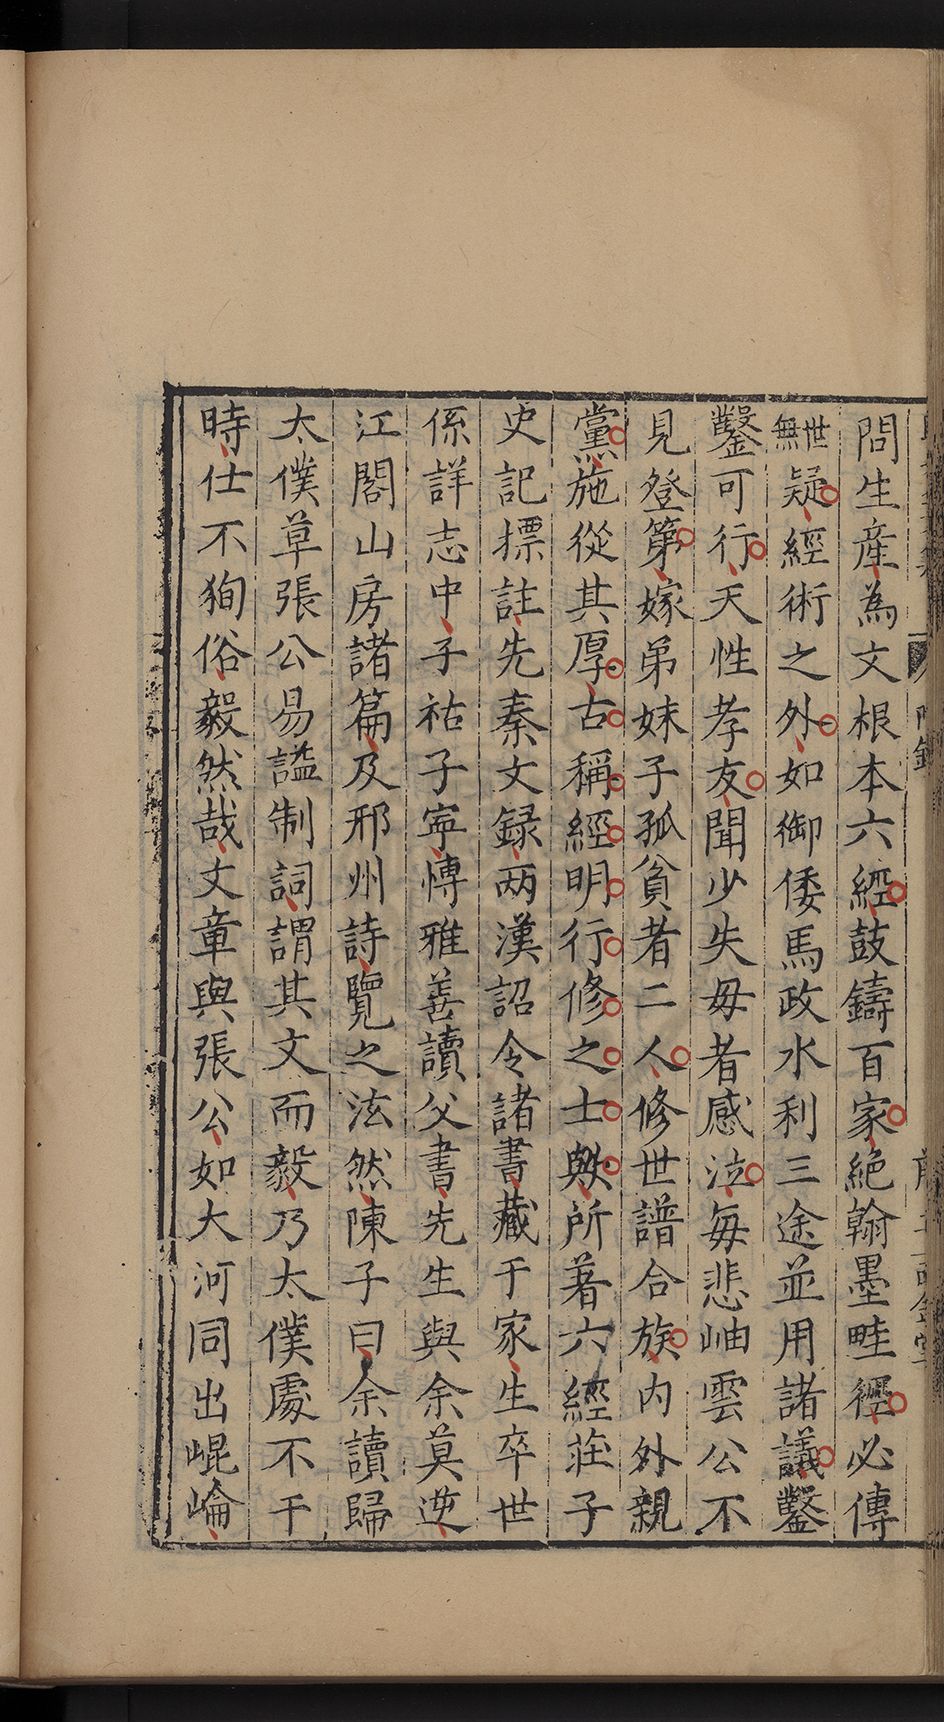 問生產為文根本六經鼓鑄百家絕翰墨畦徑必傳
世無疑經術之外如御倭馬政水利三途並用諸議鑿
鑿可行天性孝友聞少失母者感泣每悲岫雲公不
見登第嫁弟妹子孤貧者二人修世譜合族內外親
黨施從其厚古稱經明行修之士歟所著六經莊子
史記摽註先秦文録兩漢詔令諸書藏于家生卒世
係詳志中子祜子寧愽雅善讀父書先生與余莫逆
江閣山房諸篇及邢州詩覽之泫然陳子曰余讀歸
太僕草張公易謚制詞謂其文而毅乃太僕處不干
時仕不狥俗毅然哉文章與張公如大河同出崐崘